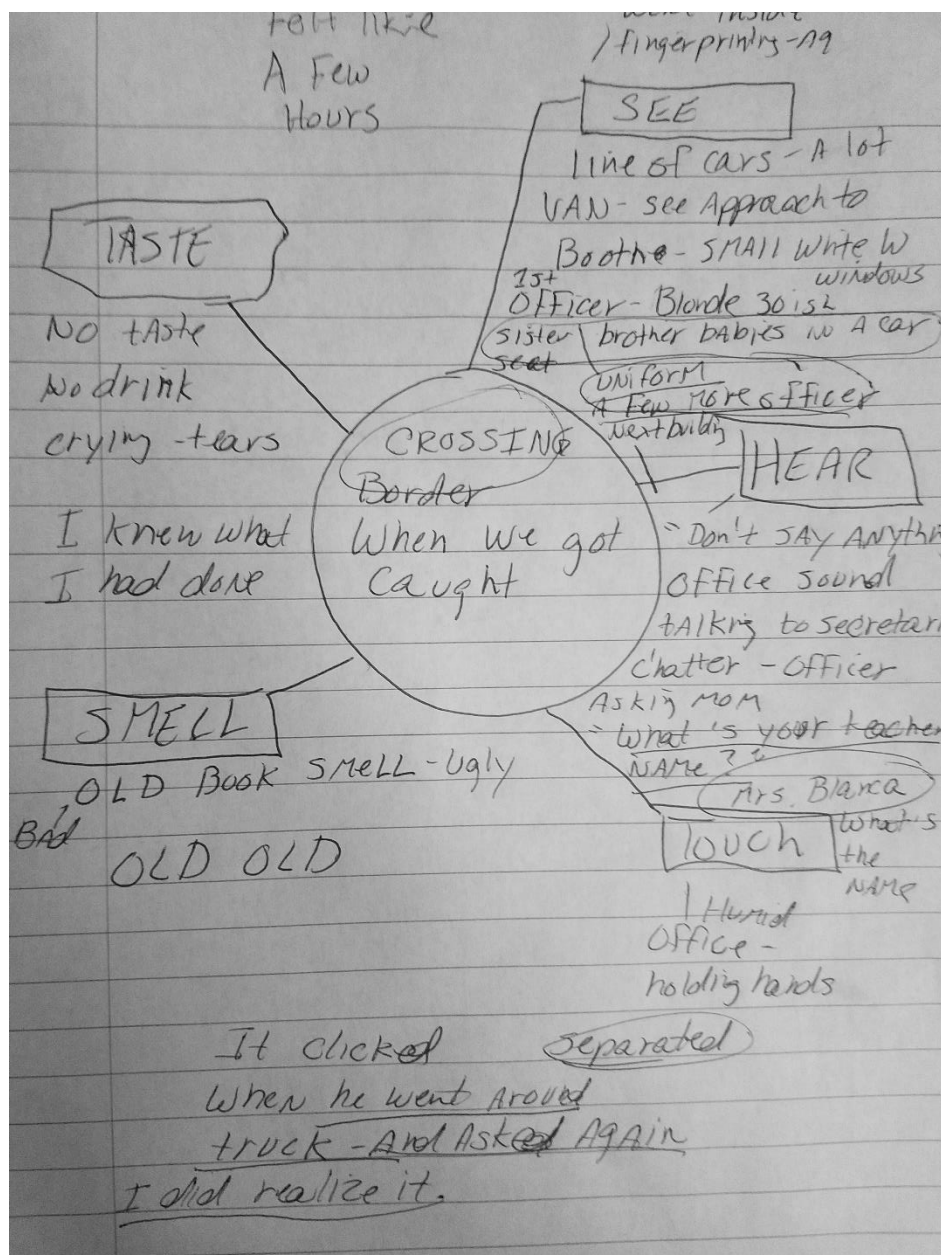 felt like
A Few
Hours
went inside
/ fingerprinting-
SEE
line of cars - A lot
VAN - see Approach to
Booth - SMALL White W
windows
1st
Officer - Blonde 30 ish
sister brother babies in A car
seat
UNIFORM
A Few More officer
Next buildig
TASTE
No tAste
No drink
crying - tears
I knew what
I had done
CROSSING
Border
When we got
Caught
HEAR
"Don't SAY ANYthin
Office sound
tAlking to secretari
Chatter - Officer
Asking MOM
"What's your teacher
NAME?"
Mrs. Blanca
What's
the
NAME
SMELL
OLD Book SMELL - Ugly
BAd
OLD OLD
TOUCH
Humid
Office -
holding hands
It clicked separated
When he went Around
truck - And Asked AgAin
I did realize it.